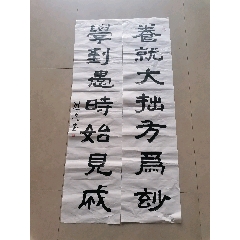 養就大拙方爲玅
學到愚時始見成